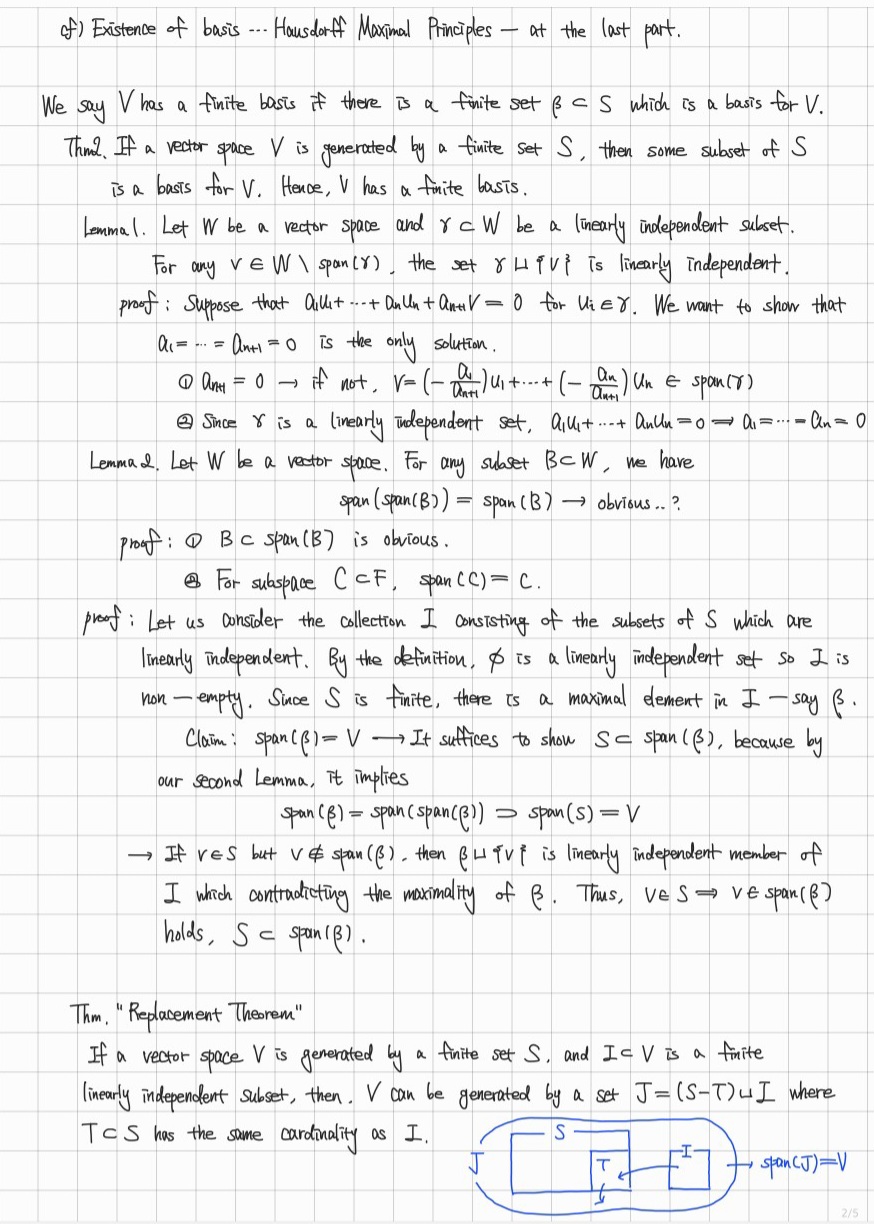 cf) Existence of basis ... Hausdorff Maximal Principles — at the last part.
We say V has a finite basis if there is a finite set β ⊂ S which is a basis for V.
Thm2. If a vector space V is generated by a finite set S, then some subset of S
is a basis for V. Hence, V has a finite basis.
Lemma 1. Let W be a vector space and γ ⊂ W be a linearly independent subset.
For any v ∈ W \ span(γ), the set γ ⊔ {v} is linearly independent.
proof : Suppose that a₁u₁ + ... + aₙuₙ + aₙ₊₁v = 0 for uᵢ ∈ γ. We want to show that
a₁ = ... = aₙ₊₁ = 0 is the only solution.
① aₙ₊₁ = 0 → if not, v = (-a₁/aₙ₊₁)u₁ + ... + (-aₙ/aₙ₊₁)uₙ ∈ span(γ)
② Since γ is a linearly independent set, a₁u₁ + ... + aₙuₙ = 0 ⟹ a₁ = ... = aₙ = 0
Lemma 2. Let W be a vector space. For any subset B ⊂ W, we have
span(span(B)) = span(B) → obvious..?
proof : ① B ⊂ span(B) is obvious.
② For subspace C ⊂ F, span(C) = C.
proof : Let us consider the collection I consisting of the subsets of S which are
linearly independent. By the definition, ϕ is a linearly independent set so I is
non - empty. Since S is finite, there is a maximal element in I — say β.
Claim : span(β) = V → It suffices to show S ⊂ span(β), because by
our second Lemma, it implies
span(β) = span(span(β)) ⊃ span(S) = V
→ If v ∈ S but v ∉ span(β), then β ⊔ {v} is linearly independent member of
I which contradicting the maximality of β. Thus, v ∈ S ⟹ v ∈ span(β)
holds, S ⊂ span(β).
Thm. "Replacement Theorem"
If a vector space V is generated by a finite set S, and I ⊂ V is a finite
linearly independent subset, then, V can be generated by a set J = (S-T) ⊔ I where
T ⊂ S has the same cardinality as I.
J S T I → span(J) = V
2/5